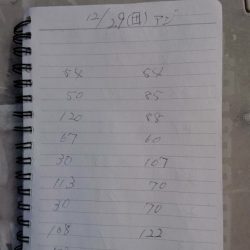 12/29(日)アジ
54 54
50 85
120 88
67 60
30 107
113 70
30 70
108 122